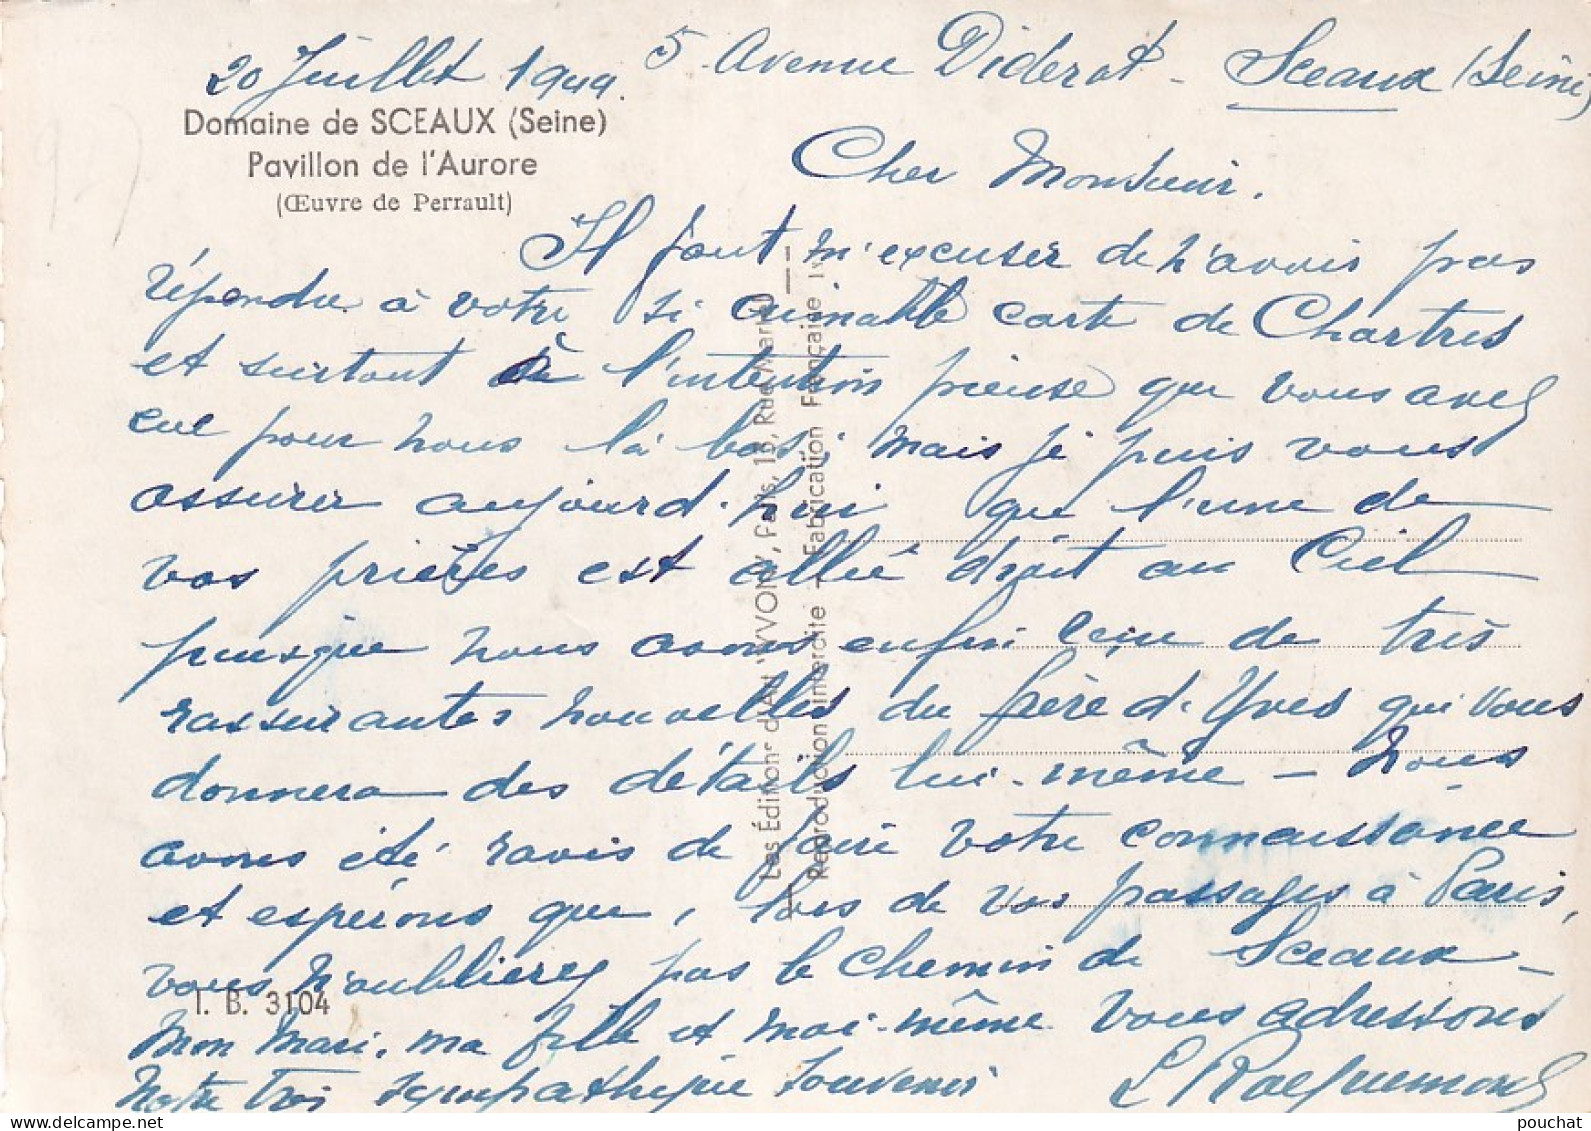 20 Juillet 1949. 5 Avenue Diderot - Sceaux (Seine)
Domaine de SCEAUX (Seine)
Pavillon de l'Aurore
(Œuvre de Perrault)
Cher Monsieur.
Il faut m'excuser de n'avoir pas
répondre à votre si aimable carte de Chartres
et surtout à l'intention pieuse que vous avez
eue pour nous là bas; mais je puis vous
assurer aujourd'hui que l'une de
vos prières est allée droit au Ciel
puisque nous avons enfin reçu de très
rassurantes nouvelles du frère d'Yves qui vous
donnera des détails lui-même - Nous
avons été ravis de faire votre connaissance
et espérons que, lors de vos passages à Paris,
vous n'oublierez pas le chemin de Sceaux -
I. B. 3104
Mon Mari, ma fille et moi-même vous adressons
Notre très sympathique souvenir
Les Éditions d'Art YVON, Paris, 15, Rue Martel
Reproduction interdite - Fabrication Française
pouchat